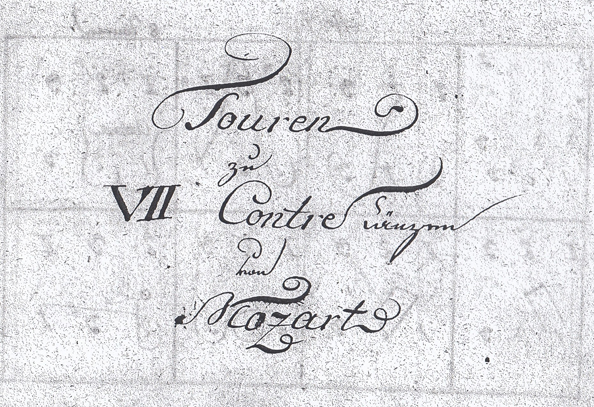 Touren
zu
VII Contre Tänzen
von
Mozart